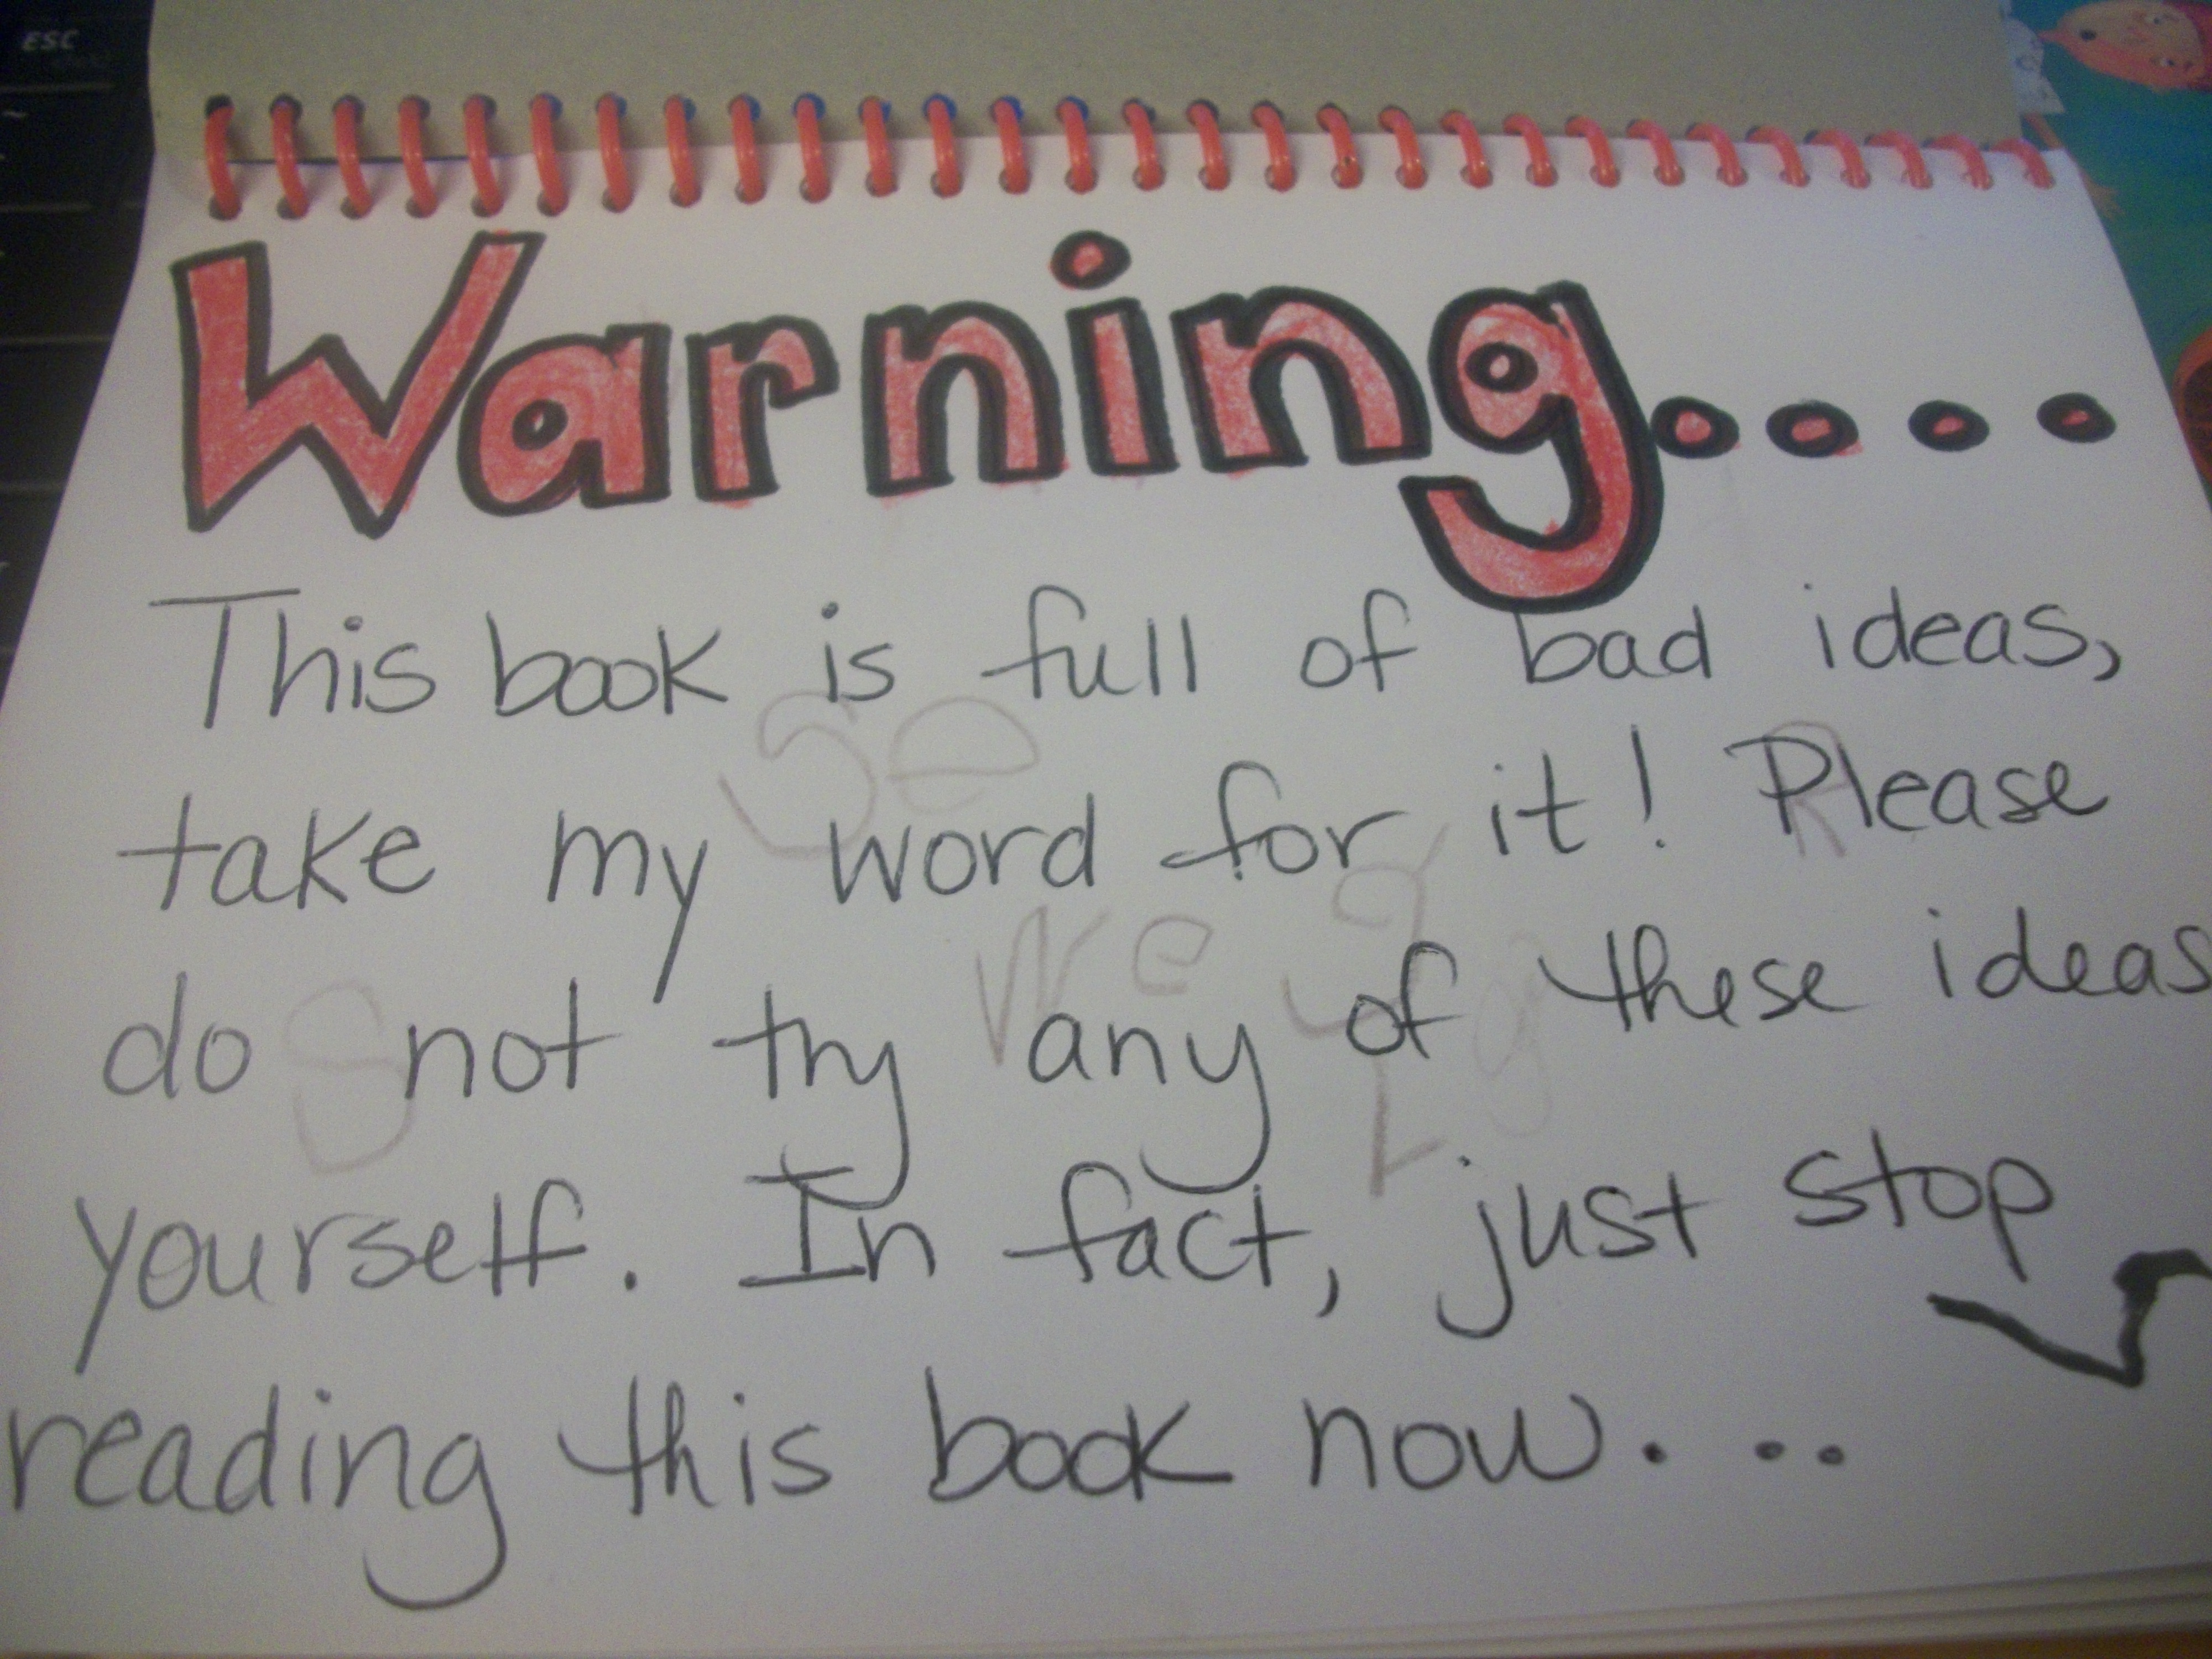 ESC
Warning....
This book is full of bad ideas,
take my word for it! Please
do not try any of these ideas
yourself. In fact, just stop
reading this book now...